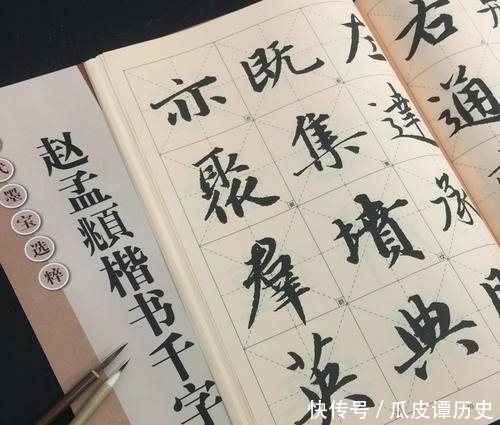 墨宝选粹
赵孟頫楷书千字
右通
左達承
既集墳典
亦聚羣英
快传号 / 瓜皮谭历史